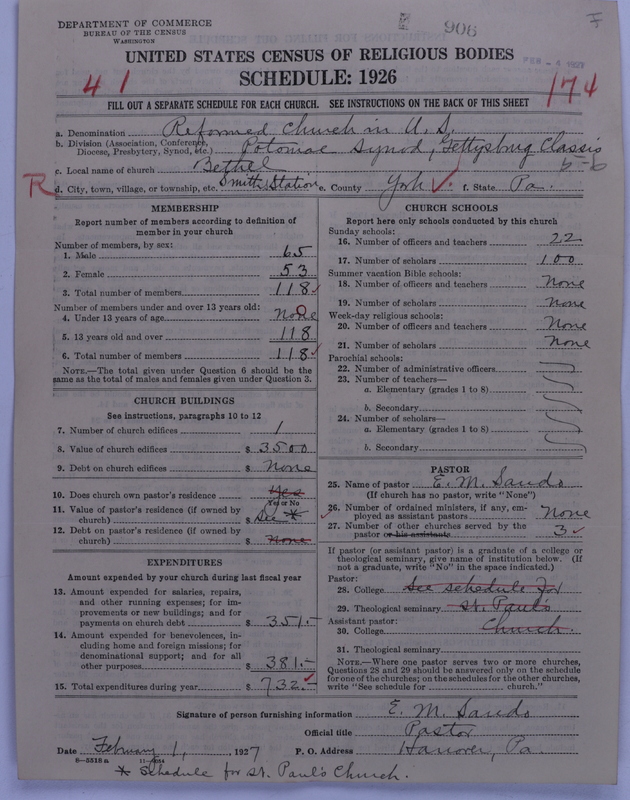 DEPARTMENT OF COMMERCE
BUREAU OF THE CENSUS
WASHINGTON
906
UNITED STATES CENSUS OF RELIGIOUS BODIES
SCHEDULE: 1926
4 1
174
FILL OUT A SEPARATE SCHEDULE FOR EACH CHURCH. SEE INSTRUCTIONS ON THE BACK OF THIS SHEET
a. Denomination Reformed Church in U.S.
b. Division (Association, Conference, Diocese, Presbytery, Synod, etc.) Potomac Synod, Gettysburg Classis
5-b
c. Local name of church Bethel
R
d. City, town, village, or township, etc. Smith Station e. County York f. State Pa.
MEMBERSHIP
Report number of members according to definition of
member in your church
Number of members, by sex:
1. Male 65
2. Female 53
3. Total number of members 118
Number of members under and over 13 years old:
4. Under 13 years of age None
5. 13 years old and over 118
6. Total number of members 118
NOTE.—The total given under Question 6 should be the
same as the total of males and females given under Question 3.
CHURCH BUILDINGS
See instructions, paragraphs 10 to 12
7. Number of church edifices 1
8. Value of church edifices $ 3500
9. Debt on church edifices $ None
10. Does church own pastor's residence Yes
Yes or No
11. Value of pastor's residence (if owned by
church) $ See *
12. Debt on pastor's residence (if owned by
church) $ None
EXPENDITURES
Amount expended by your church during last fiscal year
13. Amount expended for salaries, repairs,
and other running expenses; for im-
provements or new buildings; and for
payments on church debt $ 351.-
14. Amount expended for benevolences, in-
cluding home and foreign missions; for
denominational support; and for all
other purposes $ 381.-
15. Total expenditures during year $ 732.-
CHURCH SCHOOLS
Report here only schools conducted by this church
Sunday schools:
16. Number of officers and teachers 22
17. Number of scholars 100
Summer vacation Bible schools:
18. Number of officers and teachers None
19. Number of scholars None
Week-day religious schools:
20. Number of officers and teachers None
21. Number of scholars None
Parochial schools:
22. Number of administrative officers
23. Number of teachers—
a. Elementary (grades 1 to 8)
b. Secondary
24. Number of scholars—
a. Elementary (grades 1 to 8)
b. Secondary
PASTOR
25. Name of pastor E. M. Sando
(If church has no pastor, write "None")
26. Number of ordained ministers, if any, em-
ployed as assistant pastors None
27. Number of other churches served by the
pastor or his assistants 3
If pastor (or assistant pastor) is a graduate of a college or
theological seminary, give name of institution below. (If
not a graduate, write "No" in the space indicated.)
Pastor:
28. College See schedule for
29. Theological seminary St. Paul's
Assistant pastor:
30. College Church.
31. Theological seminary
NOTE.—Where one pastor serves two or more churches,
Questions 28 and 29 should be answered only on the schedule
for one of the churches; on the schedules for the other churches,
write "See schedule for church."
Signature of person furnishing information E. M. Sando
Official title Pastor
Date February 1, 1927 P. O. Address Hanover, Pa.
8—5518a
* Schedule for St. Paul's Church.